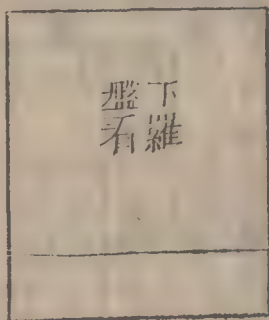 下羅
盤石